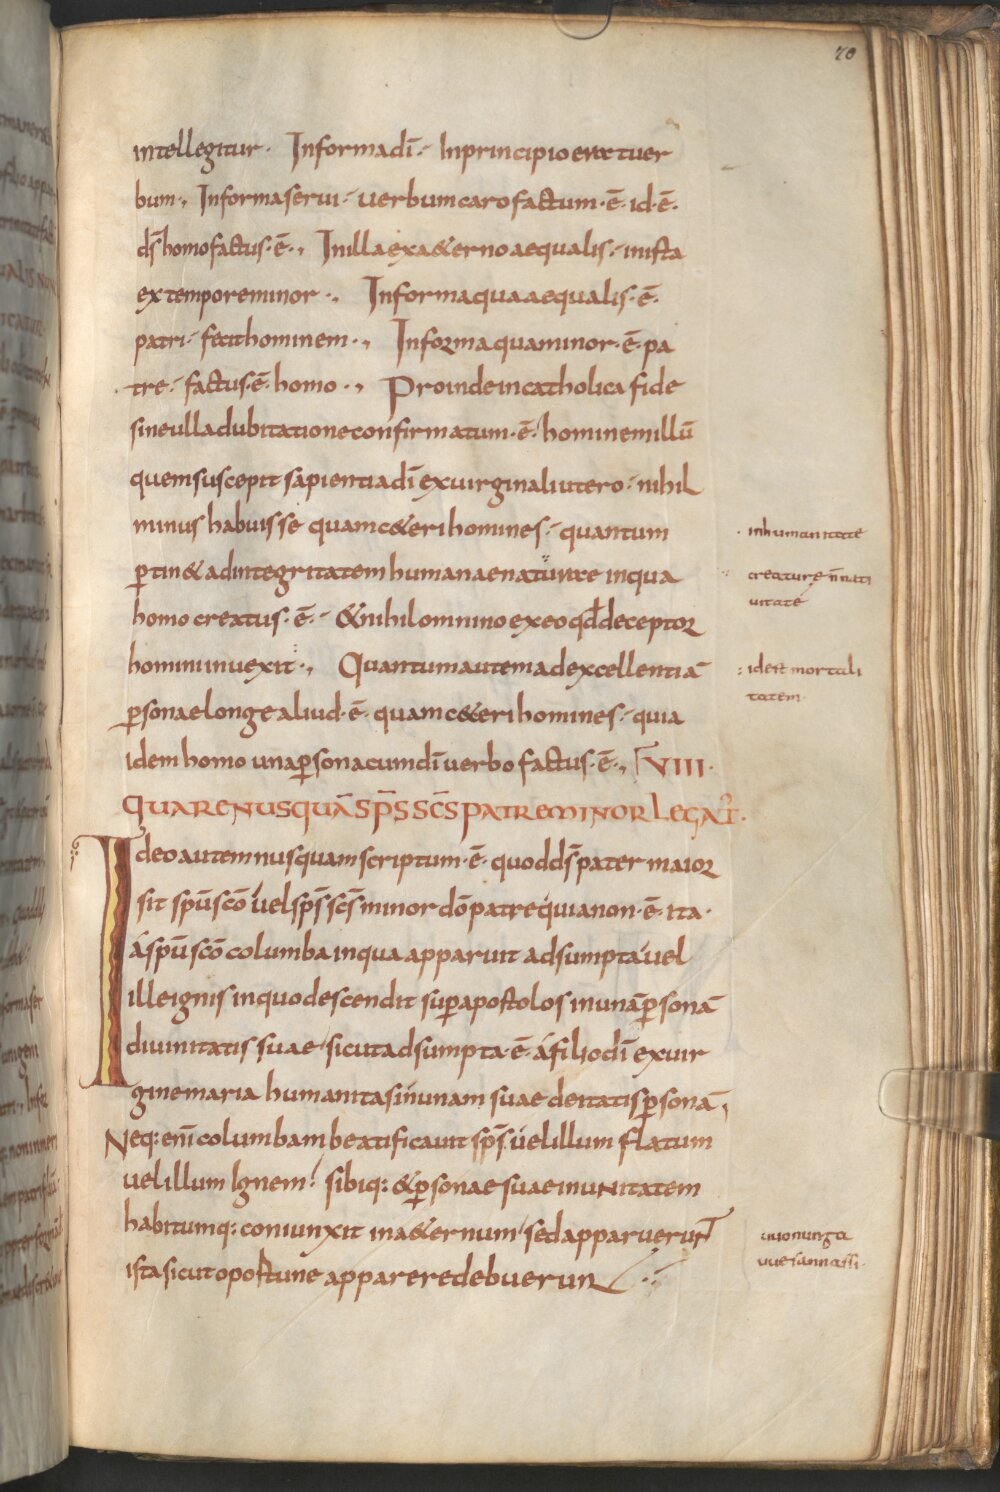 70
intellegitur · In forma dī · In principio erat uer
bum ·, In forma serui · uerbum caro factum · ē · id · ē ·
ds̄ homo factus · ē ·, In illa ex aeterno aequalis · in ista
ex tempore minor ·, In forma qua aequalis · ē ·
patri · fecit hominem ·, In forma qua minor · ē · pa
tre · factus · ē · homo ·, Proinde in catholica fide
sine ulla dubitatione confirmatum · ē · hominem illū
quem suscepit sapientia dī ex uirginali utero · nihil
minus habuisse quam ceteri homines · quantum
ꝑtinet ad integritatem humanae naturae in qua
homo creatus · ē · & nihil omnino ex eo qđ deceptor
homini inuexit ·, Quantum autem ad excellentiā
ꝑsonae longe aliud · ē · quam ceteri homines · quia
idem homo una ꝑsona cum dī uerbo factus · ē ·, VIII ·
QUARE NUSQUĀ SP̄S SC̄S PATRE MINOR LEGAT̄ ·
Ideo autem nusquam scriptum · ē · quod ds̄ pater maior
sit spū scō uel sps̄ scs̄ minor dō patre quia non · ē · ita ·
á spū scō columba in qua apparuit adsumpta uel
ille ignis in quo descendit suꝑ apostolos in unā ꝑsonā
diuinitatis suae sicut adsumpta · ē · á filio dī ex uir
gine maria humanitas in unam suae deitatis ꝑsonā,
Neq: enī columbam beatificauit sps̄ uel illum flatum
uel illum Ignem! sibiq: & ꝑsonae suae in uNitatem
habitumq: coniunxit in aeternum sed apparuerunt
ista sicut oportune apparere debuerunt
· in humanitate
creature n̄ nati
uitate
: id est mortali
tatem